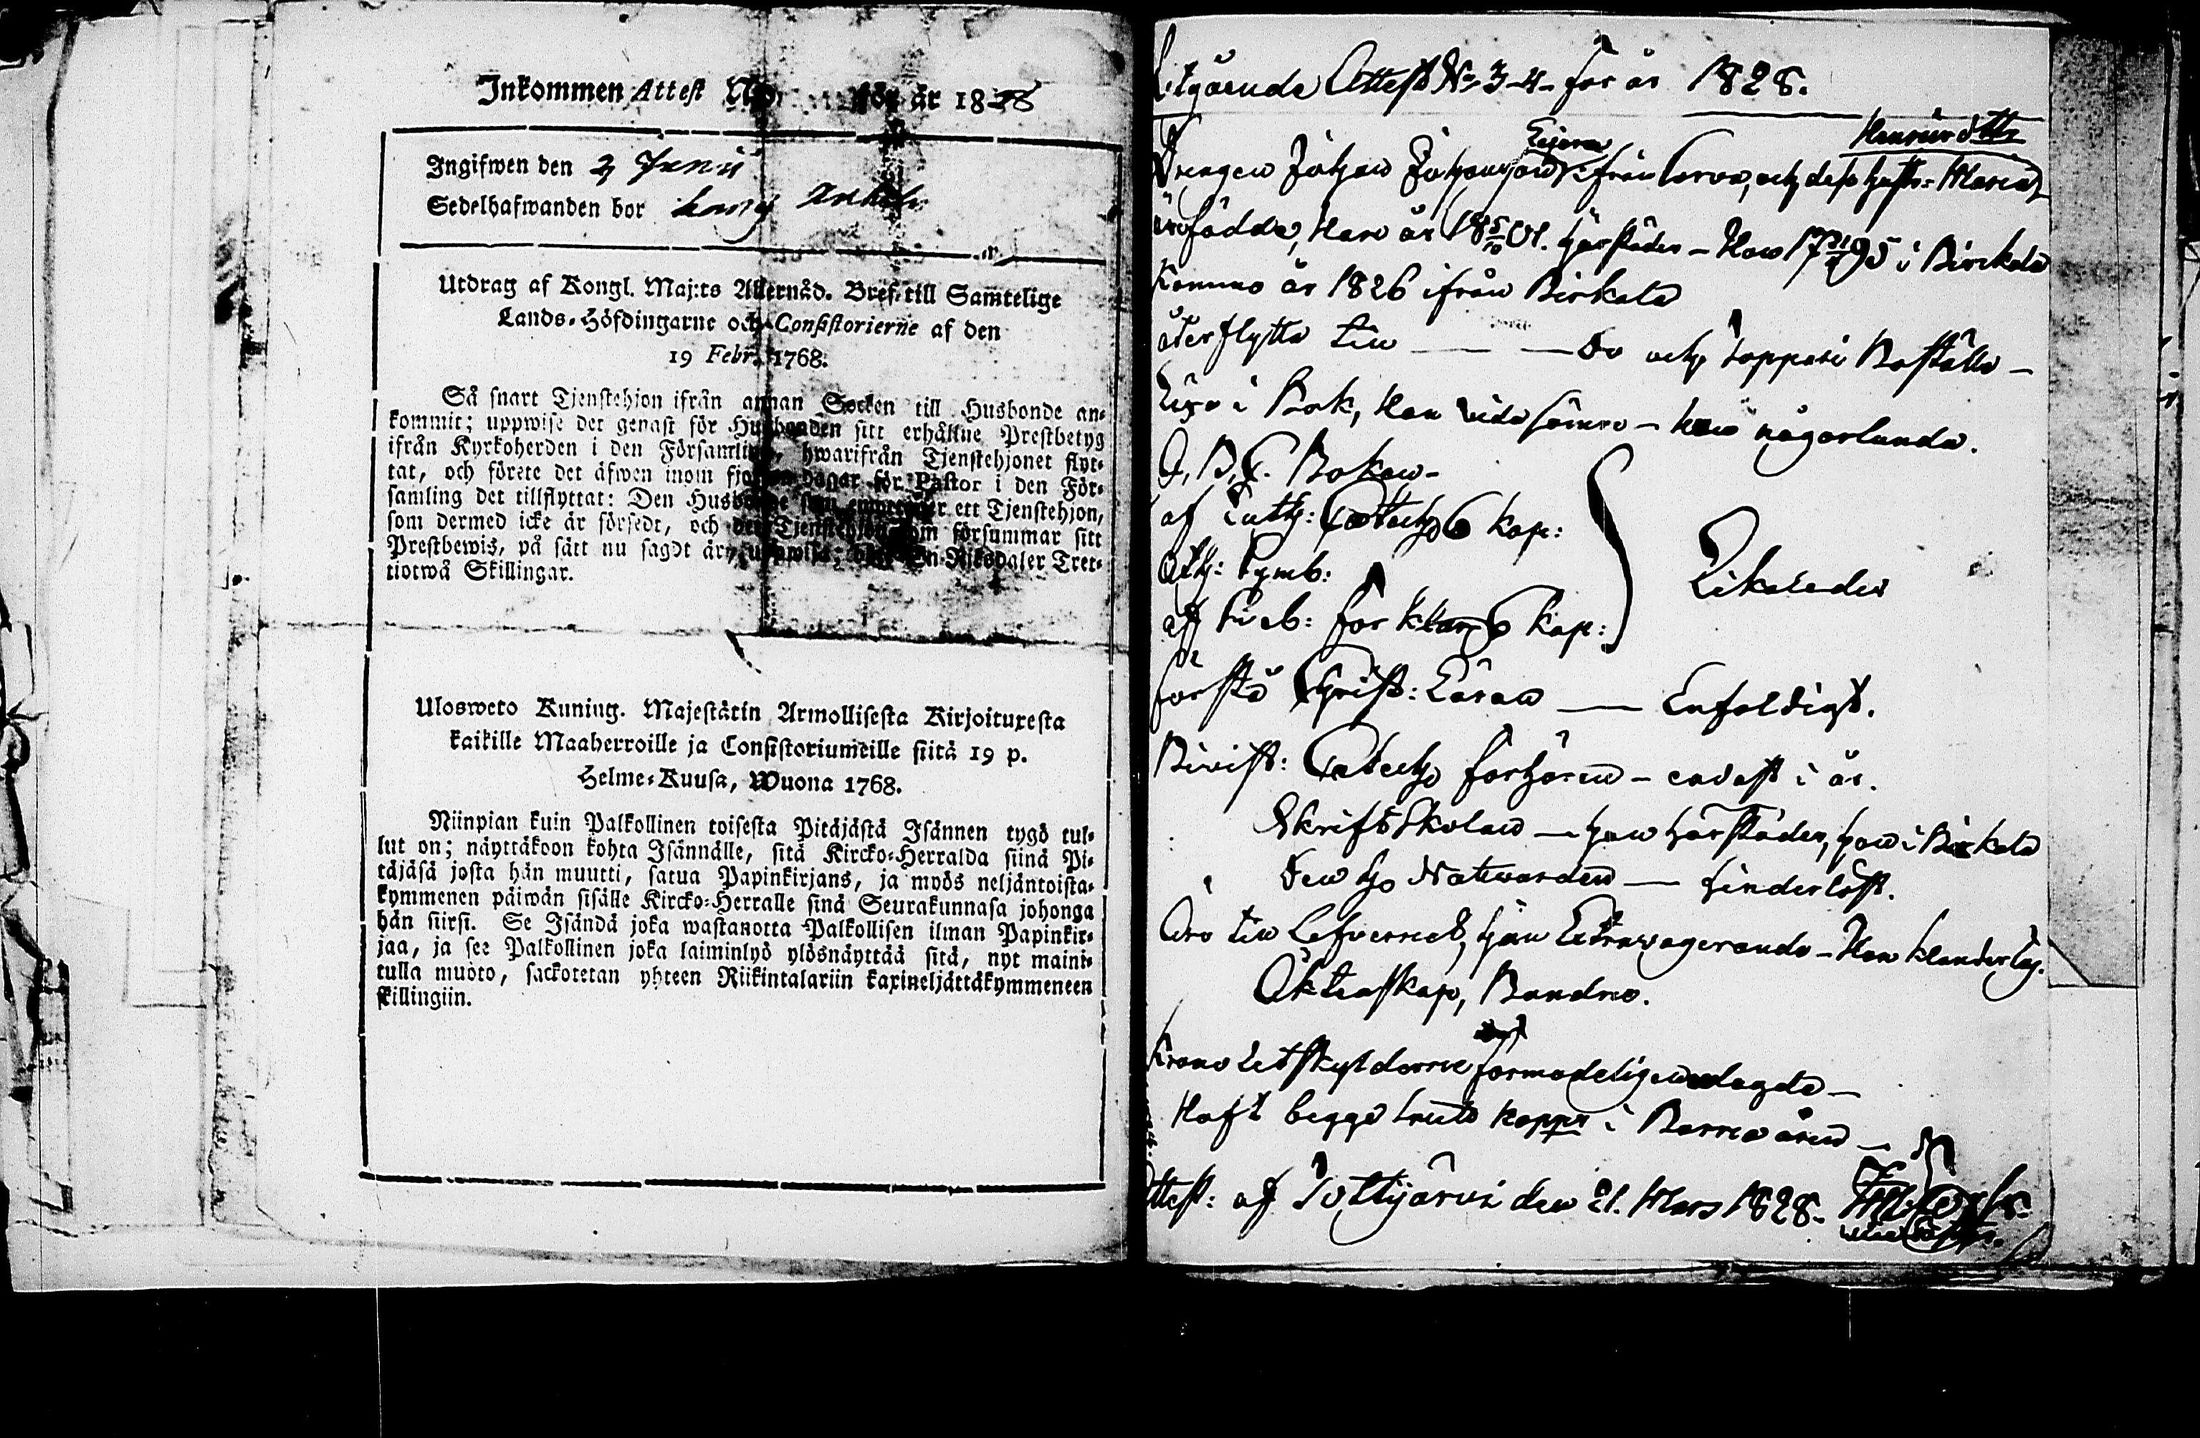 Inkommen Attest N:o för år 1828
Ingifwen den 2 Junii
Sedelhafwanden bor
Utdrag af Kongl. Maj:ts Allernåd. Bref till Samtelige
Lands-Höfdingarne och Consistorierne af den
19 Febr. 1768.
Så snart Tjenstehjon ifrån annan Socken till Husbonde an-
kommit; uppwise det genast för Husbonden sitt erhållne Prestbetyg
ifrån Kyrkoherden i den Församling, hwarifrån Tjenstehjonet flyt-
tat, och förete det äfwen inom fjorton dagar för Pastor i den För-
samling det tillflyttat: Den Husbonde som emottager ett Tjenstehjon,
som dermed icke är försedt, och det Tjenstehjon som försummar sitt
Prestbewis, på sätt nu sagdt är, uppwisa; En Riksdaler Tret-
tiotwå Skillingar.
Ulosweto Kuning. Majestätin Armollisesta Kirjoituxesta
kaikille Maaherroille ja Consistoriumeille siitä 19 p.
Helme-Kuusa, Wuona 1768.
Niinpian kuin Palkollinen toisesta Pitäjästä Isännen tygö tul-
lut on; näyttäkoon kohta Isännälle, sitä Kircko-Herralda siinä Pi-
täjäsä josta hän muutti, satua Papinkirjans, ja myös neljäntoista-
kymmenen päiwän sisälle Kircko-Herralle sinä Seurakunnasa johonga
hän siirsi. Se Isändä joka wastanotta Palkollisen ilman Papinkir-
jaa, ja see Palkollinen joka laiminlyö ylösnäyttää sitä, nyt maini-
tulla muoto, sackotetan yhteen Riikintalariin kaxineljättäkymmeneen
skillingiin.
Utgående Attest N:o 3-4- för år 1828.
Henricsdttr
Drengen Johan Johansson från och dess hust: Maria
äro födde, Han år 18 5/10 01. härstädes - Hon 17 95 i Birkala
Komne år 1826 ifrån Birkala
återflytta till — do och Boställe —
Läsa i Bok, Han sämre - hon någorlunda.
A, B, C. Boken -
af Luth: Cateches 6 kap:
Ath: Symb:
af Sveb: förklar: 6 kap:
Likaledes
förstå Christ: Läran — Enfaldigt.
Bivist: Catech: förhören - endast i år.
Skriftskolan — han härstädes, hon i Birkala
den h: Nattvarden — hinderlöst.
Äro till Lefvernet, han - Hon klanderlös.
Äktenskap,
Krono Utskylderne förmodeligen
Haft begge koppor i Barnaåren —
Attest: af Tottijärvi den 21. Mars 1828.